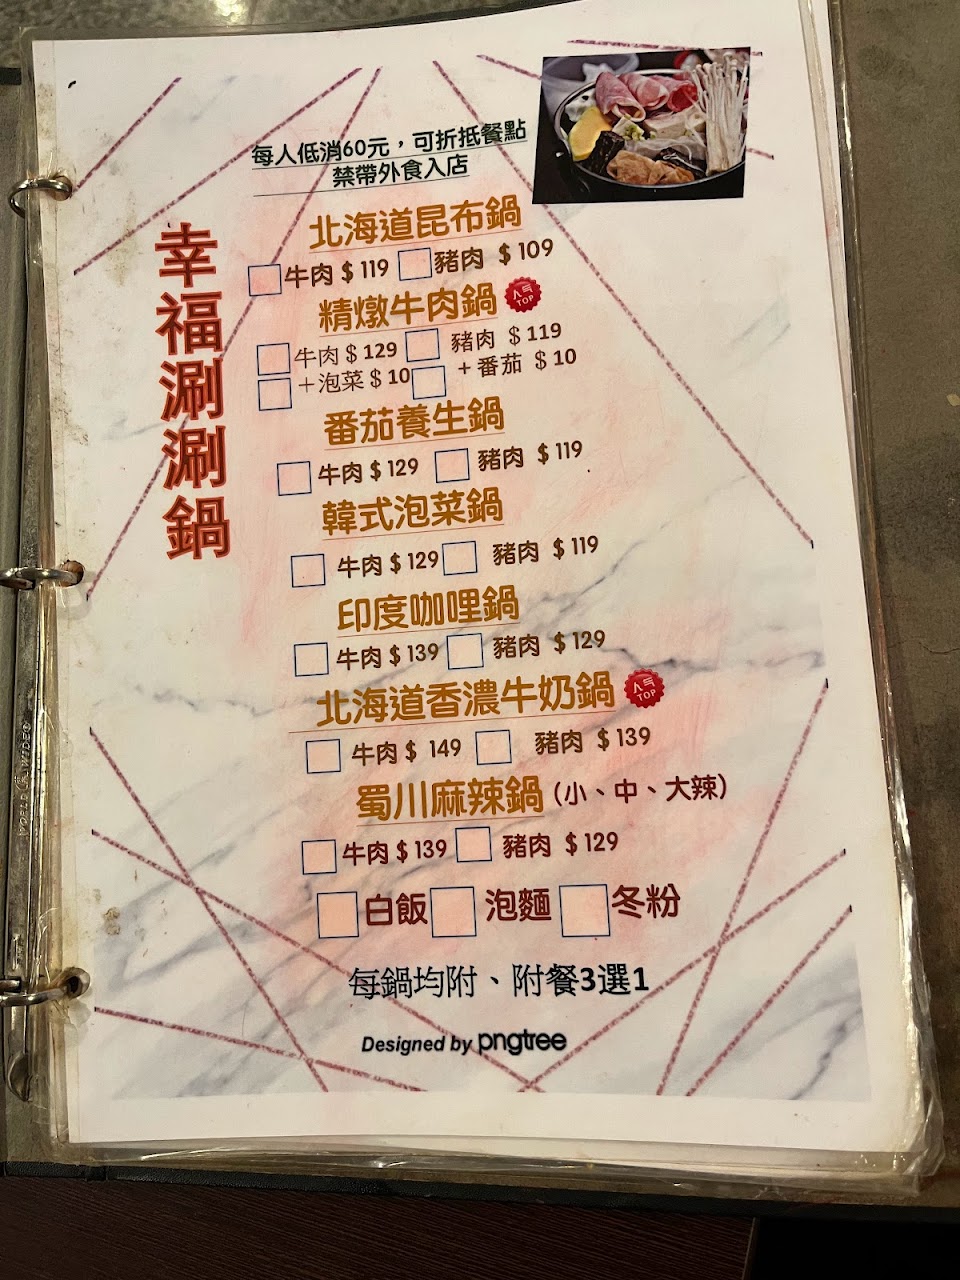 每人低消60元，可折抵餐點
禁帶外食入店
幸福涮涮鍋
北海道昆布鍋
牛肉 $ 119 豬肉 $ 109
精燉牛肉鍋 人气 TOP
牛肉 $ 129 豬肉 $ 119
＋泡菜 $ 10 ＋番茄 $ 10
番茄養生鍋
牛肉 $ 129 豬肉 $ 119
韓式泡菜鍋
牛肉 $ 129 豬肉 $ 119
印度咖哩鍋
牛肉 $ 139 豬肉 $ 129
北海道香濃牛奶鍋 人气 TOP
牛肉 $ 149 豬肉 $ 139
蜀川麻辣鍋（小、中、大辣）
牛肉 $ 139 豬肉 $ 129
白飯 泡麵 冬粉
每鍋均附、附餐3選1
Designed by pngtree